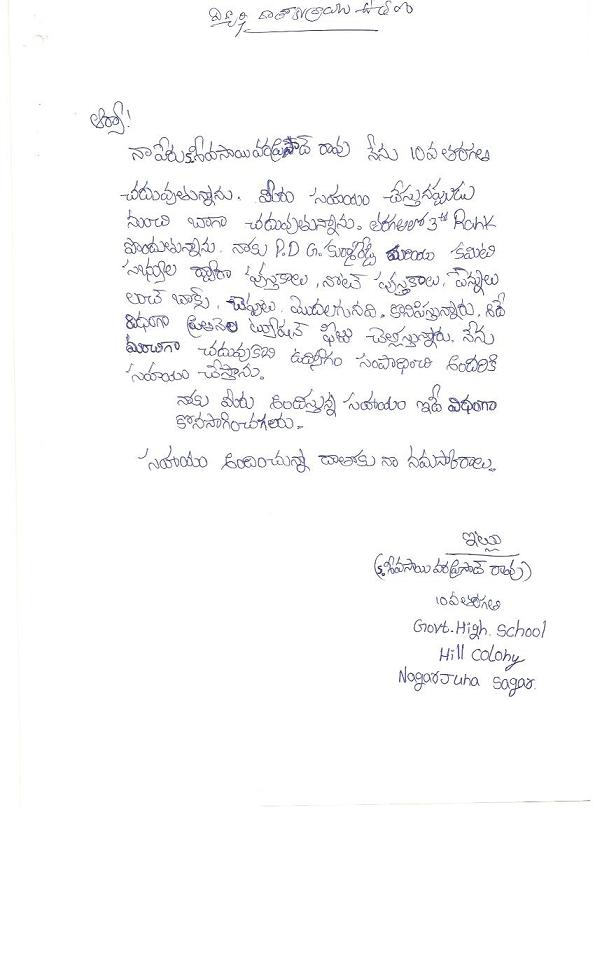 విద్యార్థి దాతలకు వ్రాయు ఉత్తరం
ఆర్యా!
నా పేరు కె.శివసాయి వరప్రసాద్ రావు నేను 10వ తరగతి
చదువుతున్నాను. మీరు సహాయం చేస్తునప్పుడు
నుంచి బాగా చదువుతున్నాను. తరగతిలో 3rd Rank
పొందుతున్నాను. నాకు P.D G. మరియు కమిటి
సభ్యుల ద్వారా పుస్తకాలు, నోట్ పుస్తకాలు, పెన్నులు
లంచ్ బాక్స్, చెప్పులు, మొదలగునవి. ఇప్పిస్తున్నారు. అదే
విధంగా ప్రతినెల ట్యూషన్ ఫీజు చెల్లిస్తున్నారు. నేను
మంచిగా చదువుకొని ఉద్యోగం సంపాదించి అందరికి
సహాయం చేస్తాను.
నాకు మీరు అందిస్తున్న సహాయం ఇదే విధంగా
కొనసాగించగలరు.
సహాయం అందించుచున్న దాతలకు నా నమస్కారాలు.
ఇట్లు
(కె.శివసాయి వరప్రసాద్ రావు)
10వ తరగతి
Govt. High. School
Hill Colony
Nagarjuna Sagar.